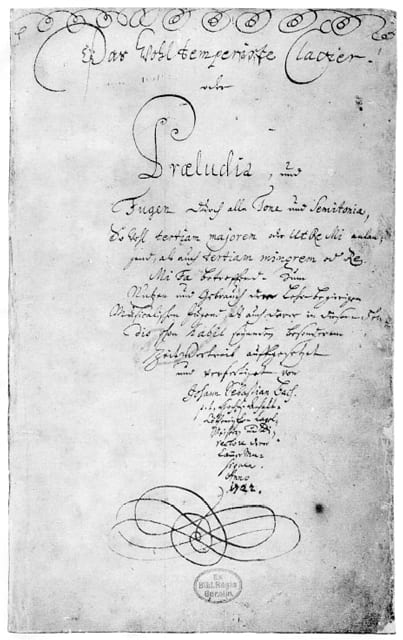 Das Wohltemperirte Clavier.
oder
Præludia, und
Fugen durch alle Tone und Semitonia,
So wohl tertiam majorem oder Ut Re Mi anlan-
gend, als auch tertiam minorem oder Re
Mi Fa betreffend. Zum
Nutzen und Gebrauch der Lehrbegierigen
Musicalischen Jugend, als auch derer in diesem stu-
dio schon habil seyenden besonderem
ZeitVertreib auffgesetzet
und verfertiget von
Johann Sebastian Bach.
p. t. Anhalt-
Capel-
Meistern und Di-
rectore derer
Camer Mu-
siquen.
Anno
1722.
Ex
Bibl. Regia
Berolin.